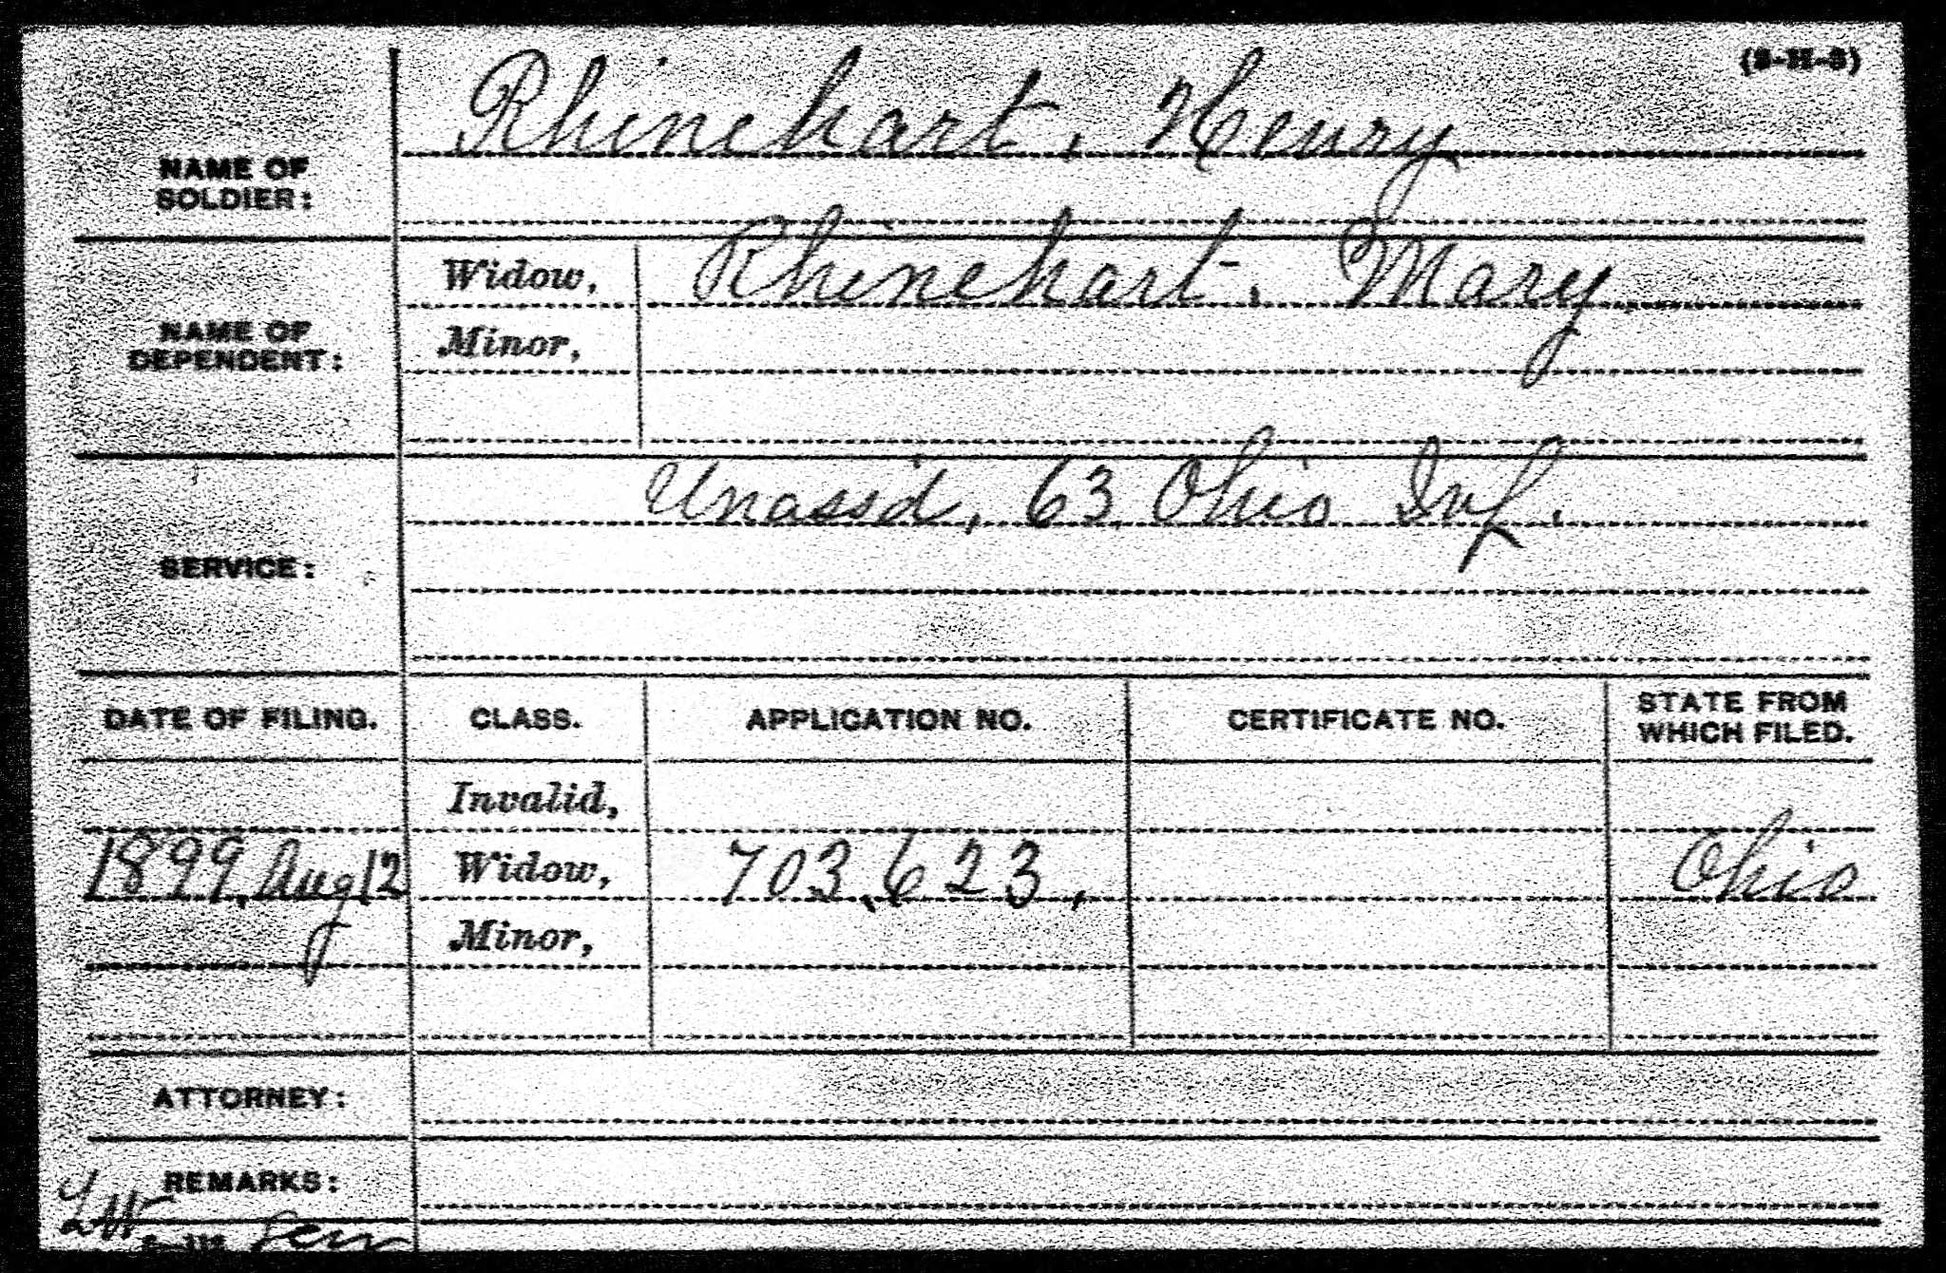 Rhinehart, Henry
NAME OF
SOLDIER:
Widow, Rhinehart, Mary
NAME OF
DEPENDENT:
Minor,
Unass'd, 63 Ohio Inf.
SERVICE:
DATE OF FILING. CLASS. APPLICATION NO. CERTIFICATE NO. STATE FROM
WHICH FILED.
Invalid,
1899, Aug 12 Widow, 703,623, Ohio
Minor,
ATTORNEY:
REMARKS: